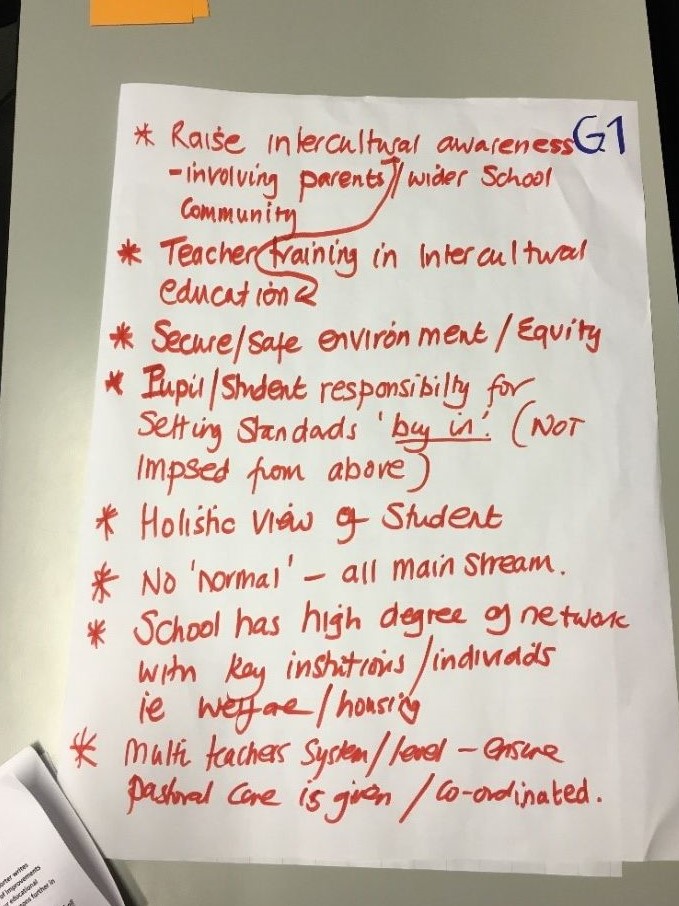 * Raise intercultural awareness G1
- involving parents / wider School
Community
* Teacher training in Intercultural
education
* Secure/safe environment / Equity
* Pupil/Student responsibilty for
Setting Standads 'buy in'. (NOT
Impsed from above)
* Holistic view of Student
* No 'normal' – all main stream.
* School has high degree of network
with key instutions / individuals
ie welfare / housing
* Multi teachers System / level – ensure
Pastoral Care is given / co-ordinated.
orter writes
of improvements
r educational
further in